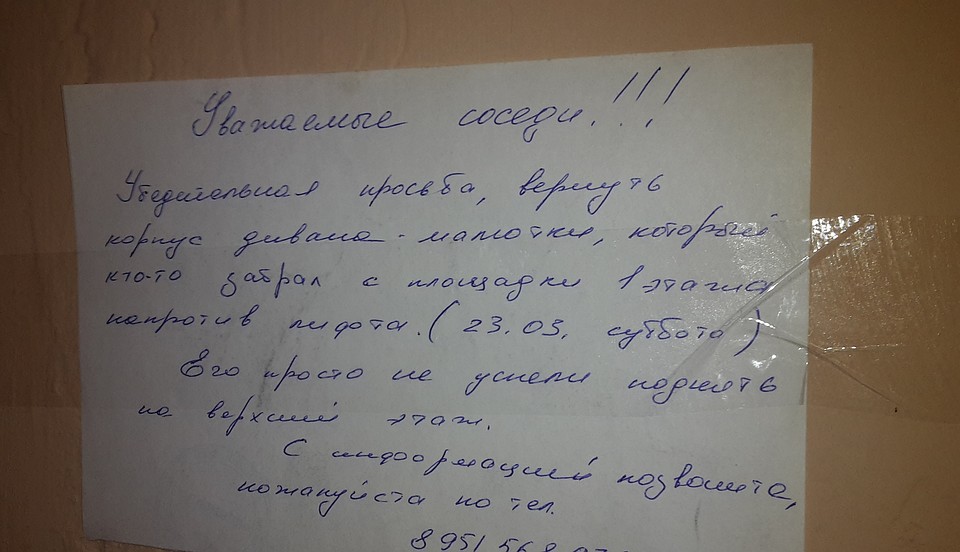 Уважаемые соседи!!!
Убедительная просьба, вернуть
корпус дивана-малютки, который
кто-то забрал с площадки 1 этажа
напротив лифта. (23.03. суббота)
Его просто не успели поднять
на верхний этаж.
С информацией позвоните,
пожалуйста по тел.
8 951 568